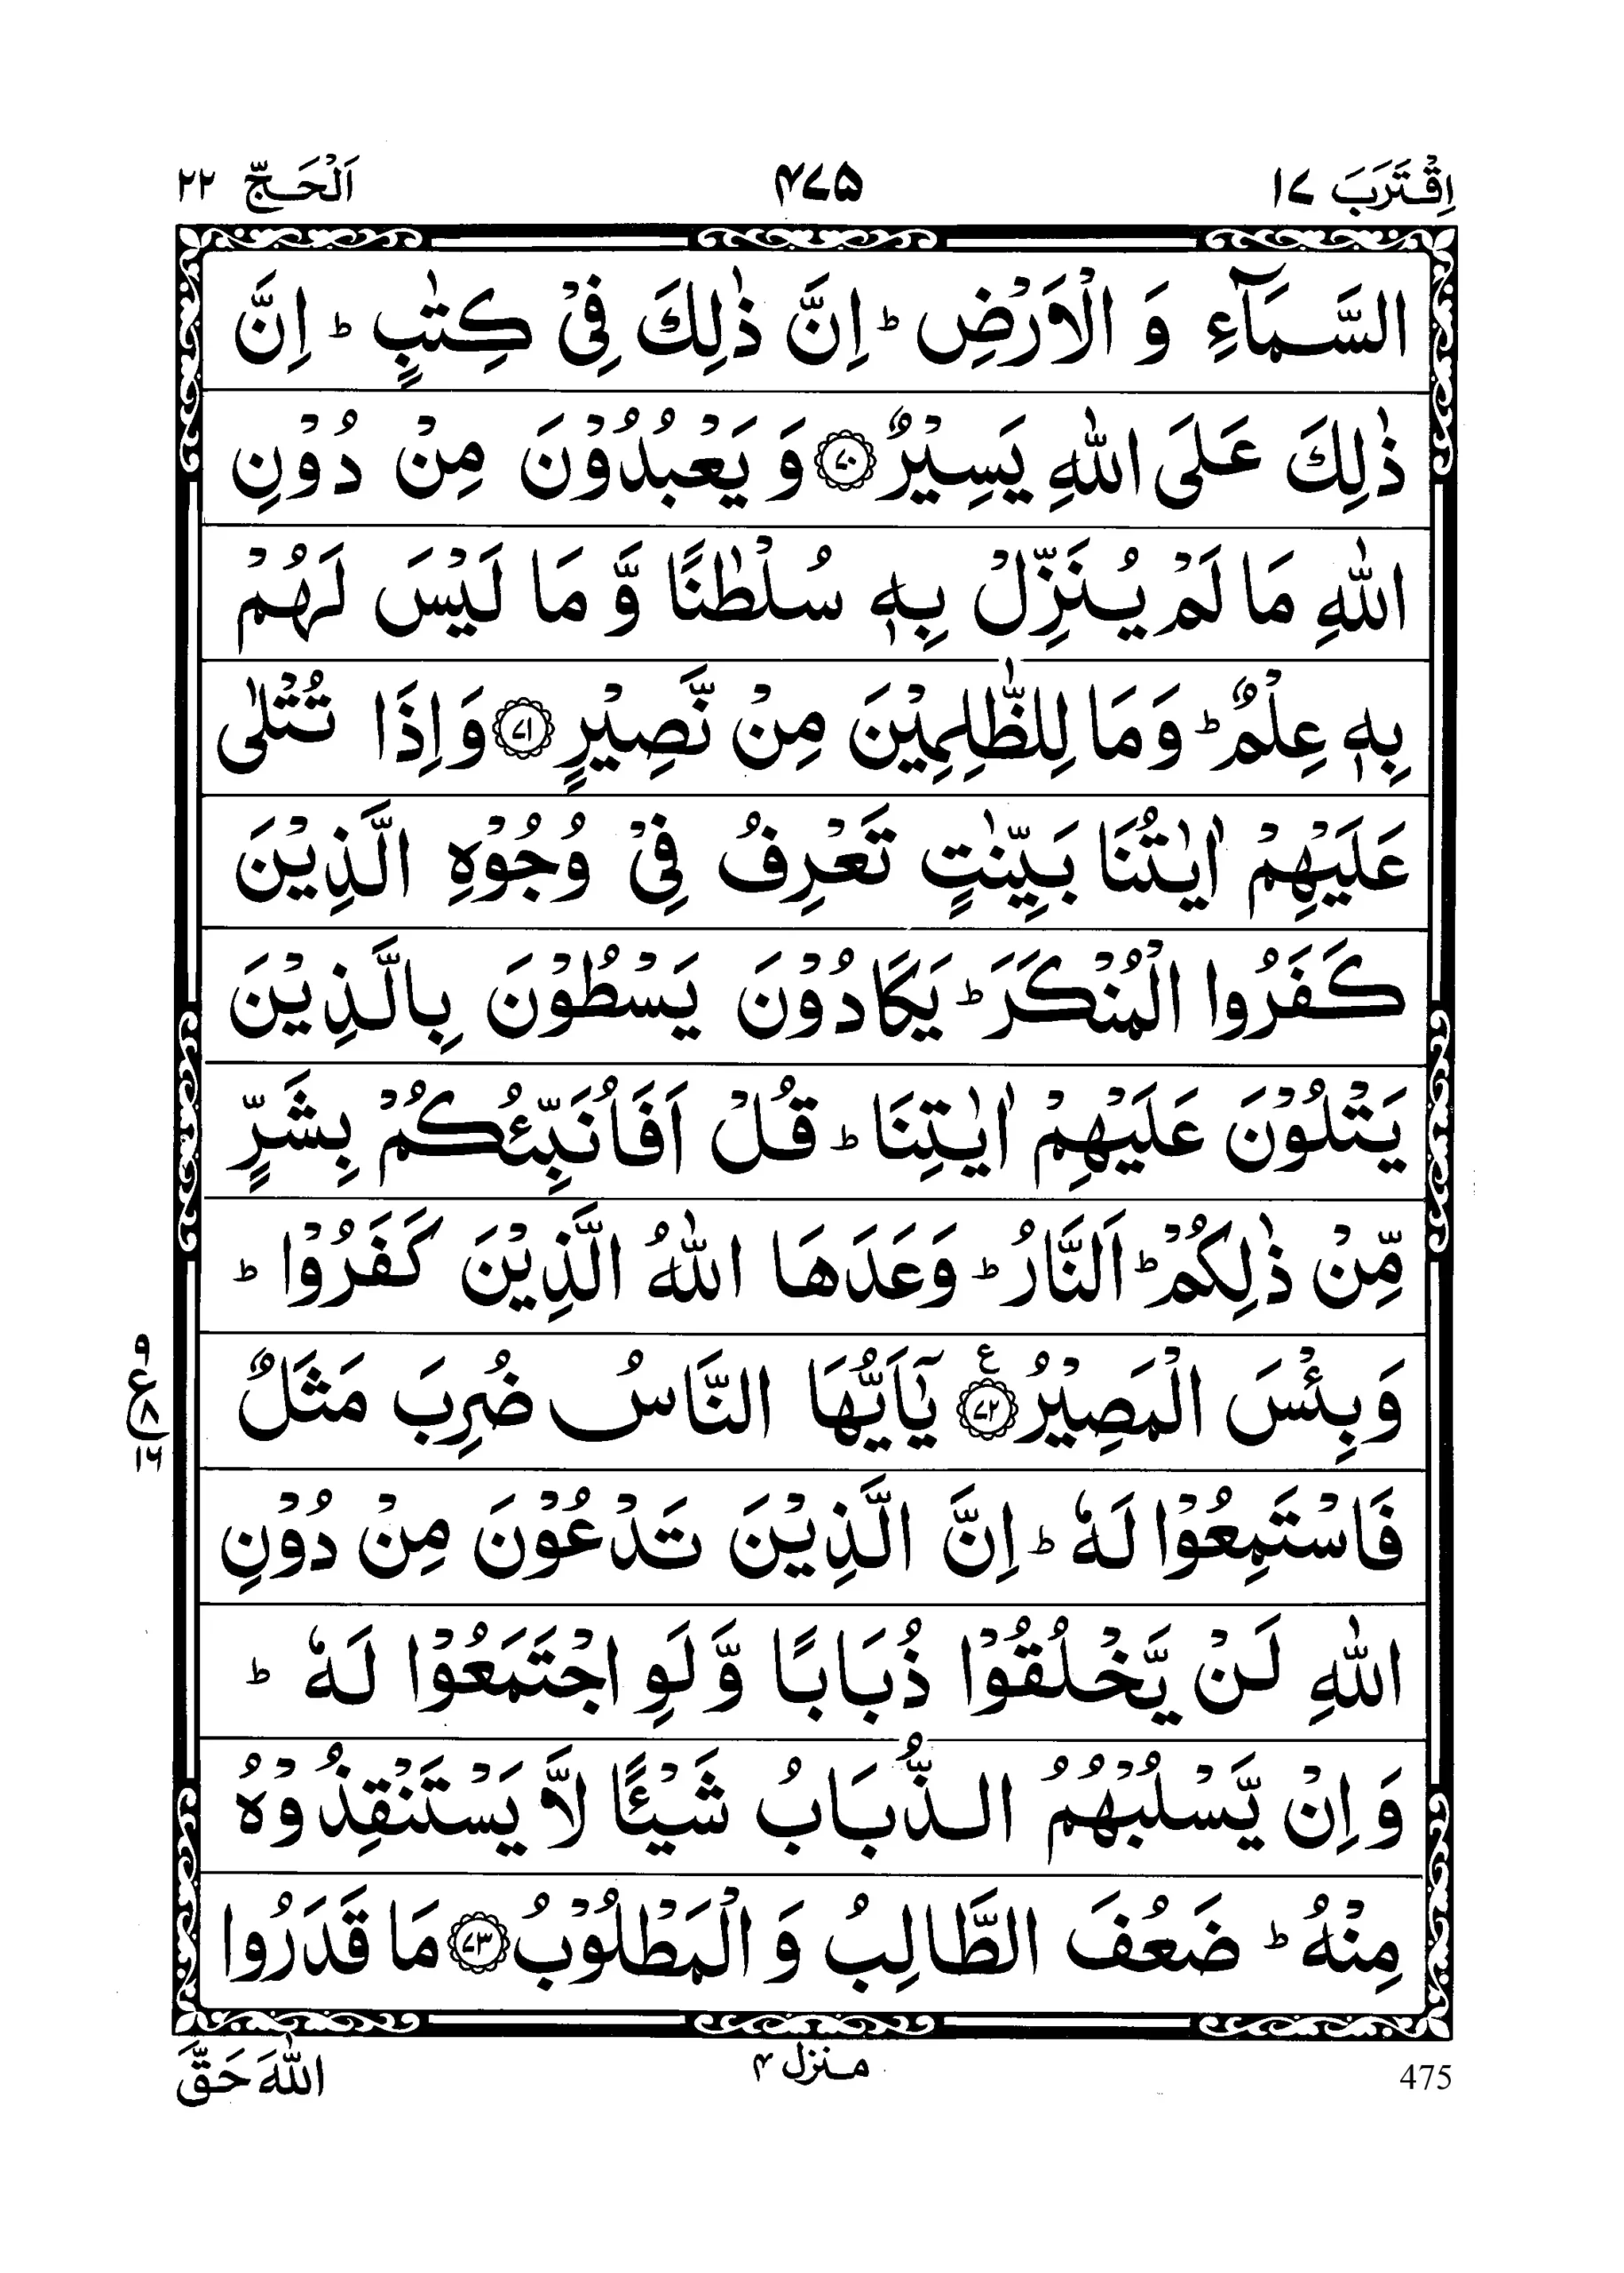 اِقْتَرَبَ ۱۷ ۴۷۵ اَلْحَجّ ۲۲
السَّمَآءِ وَ الْاَرْضِ ؕ اِنَّ ذٰلِكَ فِیْ كِتٰبٍ ؕ اِنَّ
ذٰلِكَ عَلَی اللّٰهِ یَسِیْرٌ ﴿۷۰﴾ وَ یَعْبُدُوْنَ مِنْ دُوْنِ
اللّٰهِ مَا لَمْ یُنَزِّلْ بِهٖ سُلْطٰنًا وَّ مَا لَیْسَ لَهُمْ
بِهٖ عِلْمٌ ؕ وَ مَا لِلظّٰلِمِیْنَ مِنْ نَّصِیْرٍ ﴿۷۱﴾ وَ اِذَا تُتْلٰی
عَلَیْهِمْ اٰیٰتُنَا بَیِّنٰتٍ تَعْرِفُ فِیْ وُجُوْهِ الَّذِیْنَ
كَفَرُوا الْمُنْكَرَ ؕ یَكَادُوْنَ یَسْطُوْنَ بِالَّذِیْنَ
یَتْلُوْنَ عَلَیْهِمْ اٰیٰتِنَا ؕ قُلْ اَفَاُنَبِّئُكُمْ بِشَرٍّ
مِّنْ ذٰلِكُمْ ؕ اَلنَّارُ ؕ وَعَدَهَا اللّٰهُ الَّذِیْنَ كَفَرُوْا ؕ
وَ بِئْسَ الْمَصِیْرُ ﴿۷۲﴾ ع یٰۤاَیُّهَا النَّاسُ ضُرِبَ مَثَلٌ
۹ ع ۸ ۱۶
فَاسْتَمِعُوْا لَهٗ ؕ اِنَّ الَّذِیْنَ تَدْعُوْنَ مِنْ دُوْنِ
اللّٰهِ لَنْ یَّخْلُقُوْا ذُبَابًا وَّ لَوِ اجْتَمَعُوْا لَهٗ ؕ
وَ اِنْ یَّسْلُبْهُمُ الذُّبَابُ شَیْئًا لَّا یَسْتَنْقِذُوْهُ
مِنْهُ ؕ ضَعُفَ الطَّالِبُ وَ الْمَطْلُوْبُ ﴿۷۳﴾ مَا قَدَرُوا
475 منزل ۴ اللّٰهَ حَقَّ